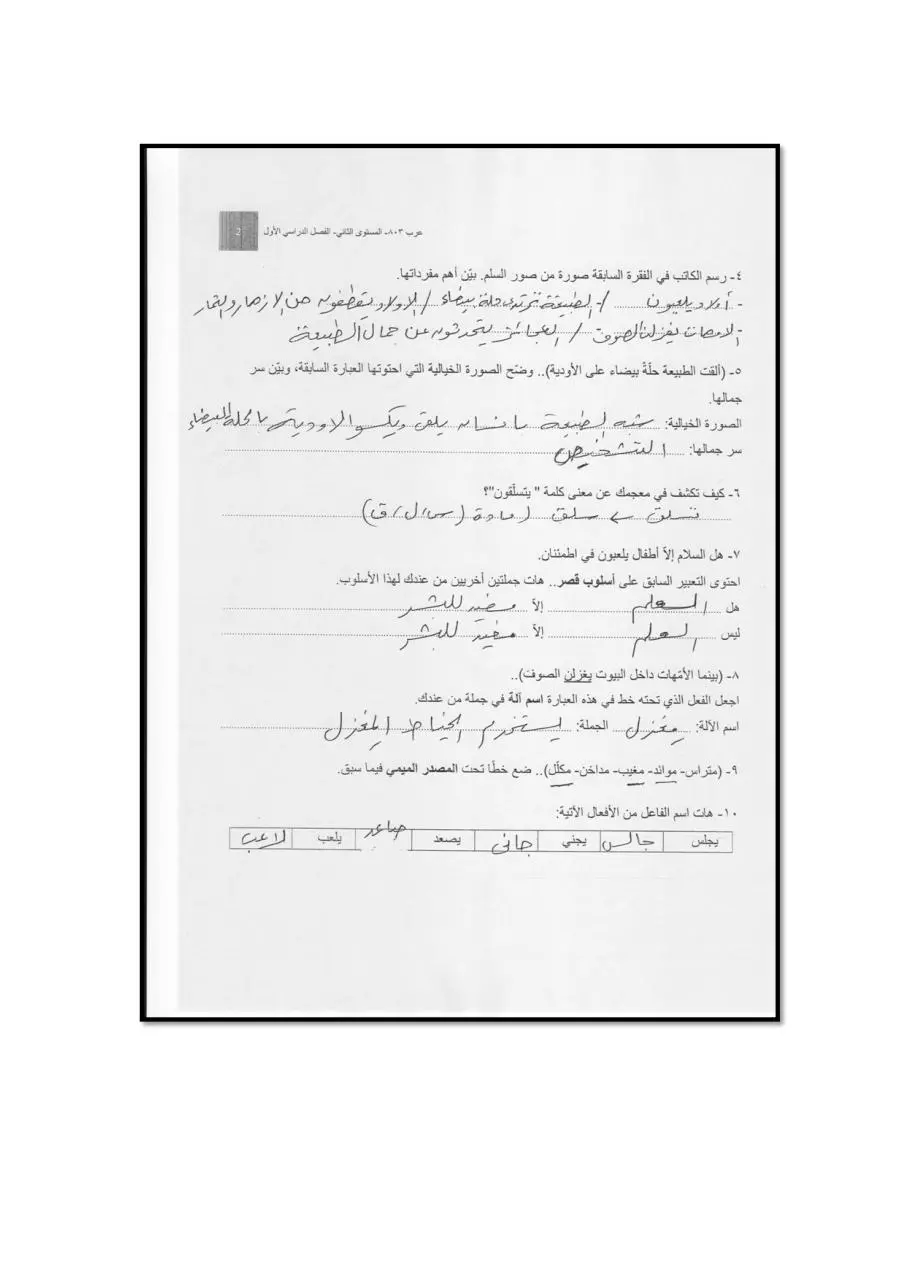 عرب ٨٠٣- المستوى الثاني- الفصل الدراسي الأول 2
٤- رسم الكاتب في الفقرة السابقة صورة من صور السلم. بيّن أهم مفرداتها.
- أولاد يلعبون /- الطبيعة ترتدي حلة بيضاء / الاولاد يقطفون من الازهار والثمار
- الامهات يغزلن الصوف / العجائز يتحدثون عن جمال الطبيعة
٥- (ألقت الطبيعة حلّةً بيضاء على الأودية).. وضّح الصورة الخيالية التي احتوتها العبارة السابقة، وبيّن سر
جمالها.
الصورة الخيالية: شبه الطبيعة بانسان يلقي ويكسو الاودية بالحلة البيضاء
سر جمالها: التشخيص
٦- كيف تكشف في معجمك عن معنى كلمة " يتسلّقون"؟
تسلق سلق مادة (س/ل/ق)
٧- هل السلام إلاّ أطفال يلعبون في اطمئنان.
احتوى التعبير السابق على أسلوب قصر.. هات جملتين أخريين من عندك لهذا الأسلوب.
هل العلم إلاّ مفيد للبشر
ليس العلم إلاّ مفيد للبشر
٨- (بينما الأمّهات داخل البيوت يغزلن الصوف)..
اجعل الفعل الذي تحته خط في هذه العبارة اسم آلة في جملة من عندك.
اسم الآلة: مِغزل الجملة: يستخدم الخياط المِغزل
٩- (متراس- موائد- مغيب- مداخن- مكلّل).. ضع خطّا تحت المصدر الميمي فيما سبق.
١٠- هات اسم الفاعل من الأفعال الآتية:
يجلس جالس يجني جاني يصعد صاعد يلعب لاعب